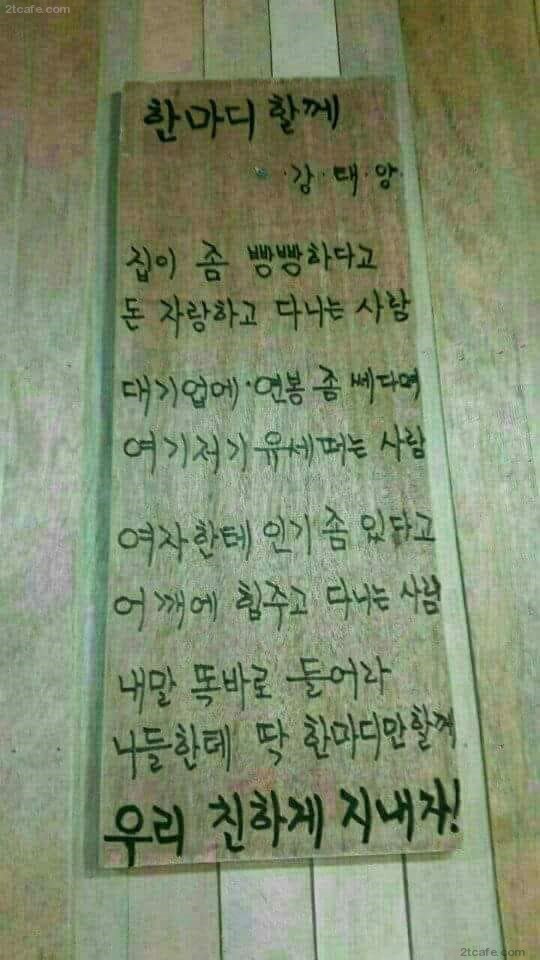 2tcafe.com
한마디 할께
·강·태·양·
집이 좀 빵빵하다고
돈 자랑하고 다니는 사람
대기업에·연봉 좀 쎄다며
여기저기 유세떠는 사람
여자한테 인기 좀 있다고
어깨에 힘주고 다니는 사람
내말 똑바로 들어라
니들한테 딱 한마디만할께
우리 친하게 지내자!
2tcafe.com